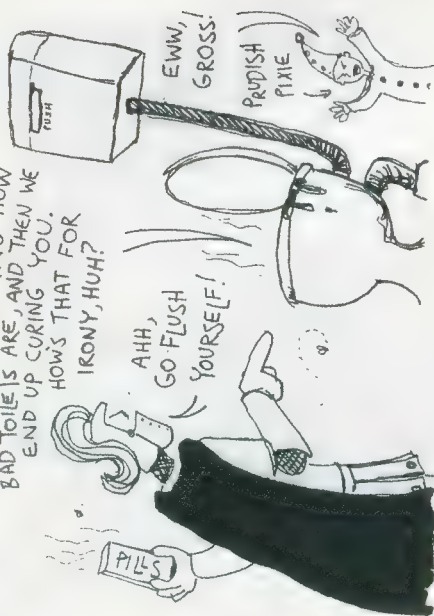 HOW
BAD TOILETS ARE, AND THEN WE
END UP CURING YOU.
HOW'S THAT FOR
IRONY, HUH?
AHH,
GO FLUSH
YOURSELF!
PILLS
PUSH
EWW,
GROSS!
PRUDISH
PIXIE